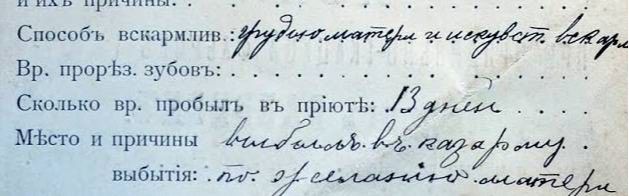 и ихъ причины:
Способъ вскармлив.: грудью матери и искуст. вскарм
Вр. прорѣз. зубовъ:
Сколько вр. пробылъ въ пріютѣ: 13 дней
Мѣсто и причины выбылъ въ казарму
выбытія: по желанію матери